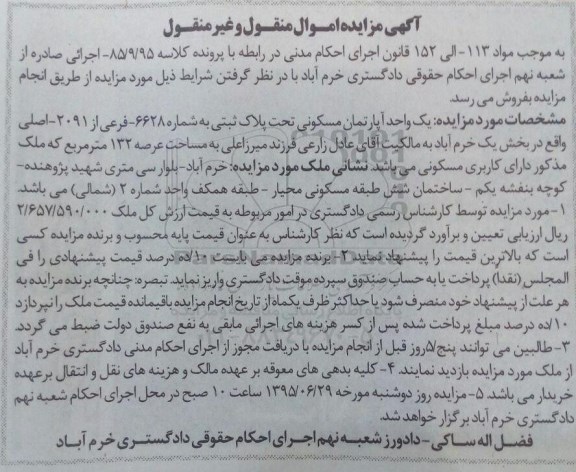 آگهی مزایده اموال منقول و غیر منقول
به موجب مواد ۱۱۳-الی ۱۵۲ قانون اجرای احکام مدنی در رابطه با پرونده کلاسه ۸۵/۹/۹۵- اجرائی صادره از
شعبه نهم اجرای احکام حقوقی دادگستری خرم آباد با در نظر گرفتن شرایط ذیل مورد مزایده از طریق انجام
مزایده بفروش می رسد.
مشخصات مورد مزایده: یک واحد آپارتمان مسکونی تحت پلاک ثبتی به شماره ۶۶۲۸-فرعی از ۲۰۹۱-اصلی
واقع در بخش یک خرم آباد به مالکیت آقای عادل زارعی فرزند میرزاعلی به مساحت عرصه ۱۳۲ مترمربع که ملک
مذکور دارای کاربری مسکونی می باشد. نشانی ملک مورد مزایده: خرم آباد-بلوار سی متری شهید پژوهنده-
کوچه بنفشه یکم - ساختمان شش طبقه مسکونی محیار - طبقه همکف واحد شماره ۲ (شمالی) می باشد.
۱-مورد مزایده توسط کارشناس رسمی دادگستری در امور مربوطه به قیمت ارزش کل ملک ۲/۶۵۷/۵۹۰/۰۰۰
ریال ارزیابی تعیین و برآورد گردیده است که نظر کارشناس به عنوان قیمت پایه محسوب و برنده مزایده کسی
است که بالاترین قیمت را پیشنهاد نماید ۲-برنده مزایده می بایست ۱۰/ده درصد قیمت پیشنهادی را فی
المجلس (نقدا) پرداخت یا به حساب صندوق سپرده موقت دادگستری واریز نماید. تبصره: چنانچه برنده مزایده به
هر علت از پیشنهاد خود منصرف شود یا حداکثر ظرف یکماه از تاریخ انجام مزایده باقیمانده قیمت ملک را نپردازد
۱۰/ده درصد مبلغ پرداخت شده پس از کسر هزینه های اجرائی مابقی به نفع صندوق دولت ضبط می گردد.
۳-طالبین می توانند پنج/۵روز قبل از انجام مزایده با دریافت مجوز از اجرای احکام مدنی دادگستری خرم آباد
از ملک مورد مزایده بازدید نمایند. ۴-کلیه بدهی های معوقه بر عهده مالک و هزینه های نقل و انتقال بر عهده
خریدار می باشد. ۵-مزایده روز دوشنبه مورخه ۱۳۹۵/۰۶/۲۹ ساعت ۱۰ صبح در محل اجرای احکام شعبه نهم
دادگستری خرم آباد برگزار خواهد شد.
فضل اله ساکی - دادورز شعبه نهم اجرای احکام حقوقی دادگستری خرم آباد